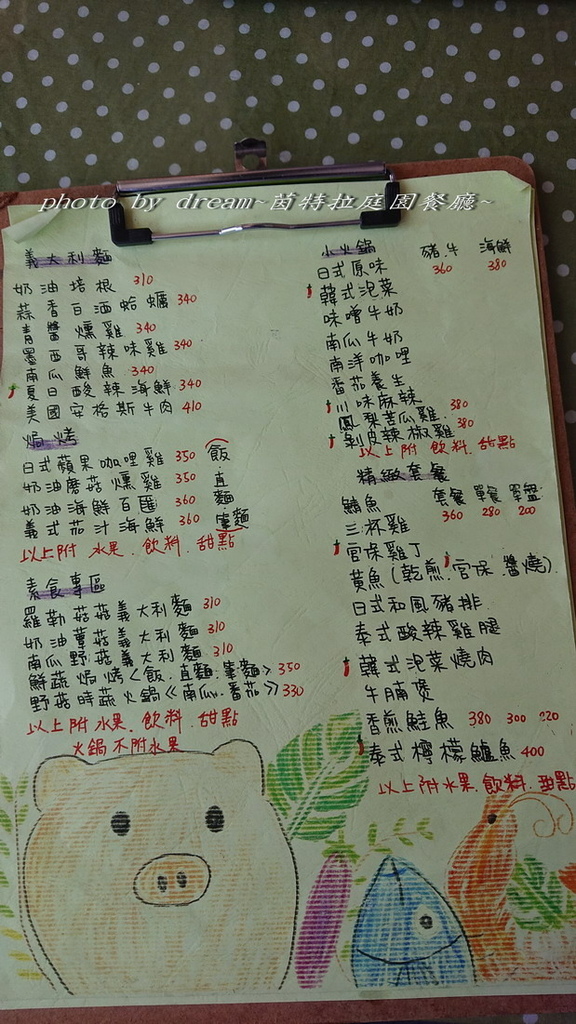 photo by dream~茵特拉庭園餐廳~
義大利麵
奶油培根 310
蒜香白酒蛤蠣 340
青醬燻雞 340
墨西哥辣味雞 340
南瓜鮮魚 340
夏日酸辣海鮮 340
美國安格斯牛肉 410
焗烤
日式蘋果咖哩雞 350
奶油磨菇燻雞 350
奶油海鮮百匯 360
義式茄汁海鮮 360
飯
直
麵
筆麵
以上附 水果.飲料.甜點
素食專區
羅勒菇菇義大利麵 310
奶油蕈菇義大利麵 310
南瓜野菇義大利麵 310
鮮蔬焗烤<飯.直麵.筆麵> 350
野菇時蔬火鍋<<南瓜.番茄>> 330
以上附水果.飲料.甜點
火鍋不附水果
小火鍋 豬.牛 海鮮
日式原味 360 380
韓式泡菜
味噌牛奶
南瓜牛奶
南洋咖哩
番茄養生
川味麻辣
鳳梨苦瓜雞 380
剝皮辣椒雞 380
以上附 飲料.甜點
精緻套餐
鯖魚 套餐 單餐 單盤
三杯雞 360 280 200
宮保雞丁
黃魚(乾煎.宮保.醬燒)
日式和風豬排
泰式酸辣雞腿
韓式泡菜燒肉
牛腩煲
香煎鮭魚 380 300 220
泰式檸檬鱸魚 400
以上附水果.飲料.甜點